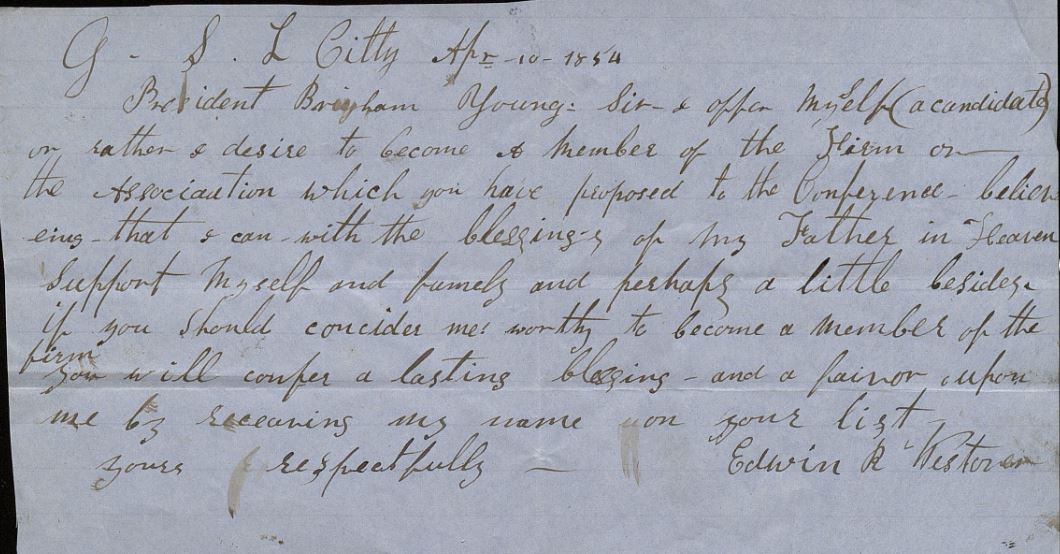 G. S. L Citty Apr - 10 - 1854
President Brigham Young = Sir - I offer MySelf (a candidate)
or rather I desire to become A Member of the Firm or
the Associaution which you have proposed to the Conference - believ
eing - that I can - with the blessings of my Father in Heaven
Support Myself and famely and perhaps a little besides
if you should concider me worthy to become a member of the
firm
you will confer a lasting blessing - and a faivor upon
me by receaving my name on your list -
yours respectfully - Edwin R Westover